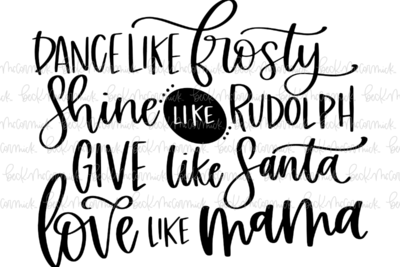 DANCE LIKE frosty
Shine LIKE RUDOLPH
GIVE like Santa
love LIKE mama